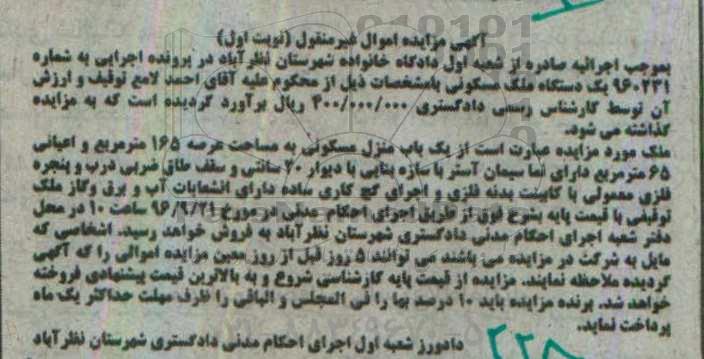 آگهی مزایده اموال غیرمنقول (نوبت اول)
بموجب اجرائیه صادره از شعبه اول دادگاه خانواده شهرستان نظرآباد در پرونده اجرایی به شماره
۹۶۰۲۳۱ یک دستگاه ملک مسکونی بامشخصات ذیل از محکوم علیه آقای احمد لامع توقیف و ارزش
آن توسط کارشناس رسمی دادگستری ۴۰۰/۰۰۰/۰۰۰ ریال برآورد گردیده است که به مزایده
گذاشته می شود.
ملک مورد مزایده عبارت است از یک باب منزل مسکونی به مساحت عرصه ۱۶۵ مترمربع و اعیانی
۶۵ مترمربع دارای نما سیمان آستر با سازه بنایی با دیوار ۲۰ سانتی و سقف طاق ضربی درب و پنجره
فلزی معمولی با کابینت بدنه فلزی و اجرای گچ کاری ساده دارای انشعابات آب و برق وگاز ملک
توقیفی با قیمت پایه بشرح فوق از طریق اجرای احکام مدنی در مورخ ۹۶/۹/۲۱ ساعت ۱۰ در محل
دفتر شعبه اجرای احکام مدنی دادگستری شهرستان نظرآباد به فروش خواهد رسید. اشخاصی که
مایل به شرکت در مزایده می باشند می توانند ۵ روز قبل از روز معین مزایده اموالی را که آگهی
گردیده ملاحظه نمایند. مزایده از قیمت پایه کارشناسی شروع و به بالاترین قیمت پیشنهادی فروخته
خواهد شد. برنده مزایده باید ۱۰ درصد بها را فی المجلس و الباقی را ظرف مهلت حداکثر یک ماه
پرداخت نماید.
دادورز شعبه اول اجرای احکام مدنی دادگستری شهرستان نظرآباد
۲۲۵